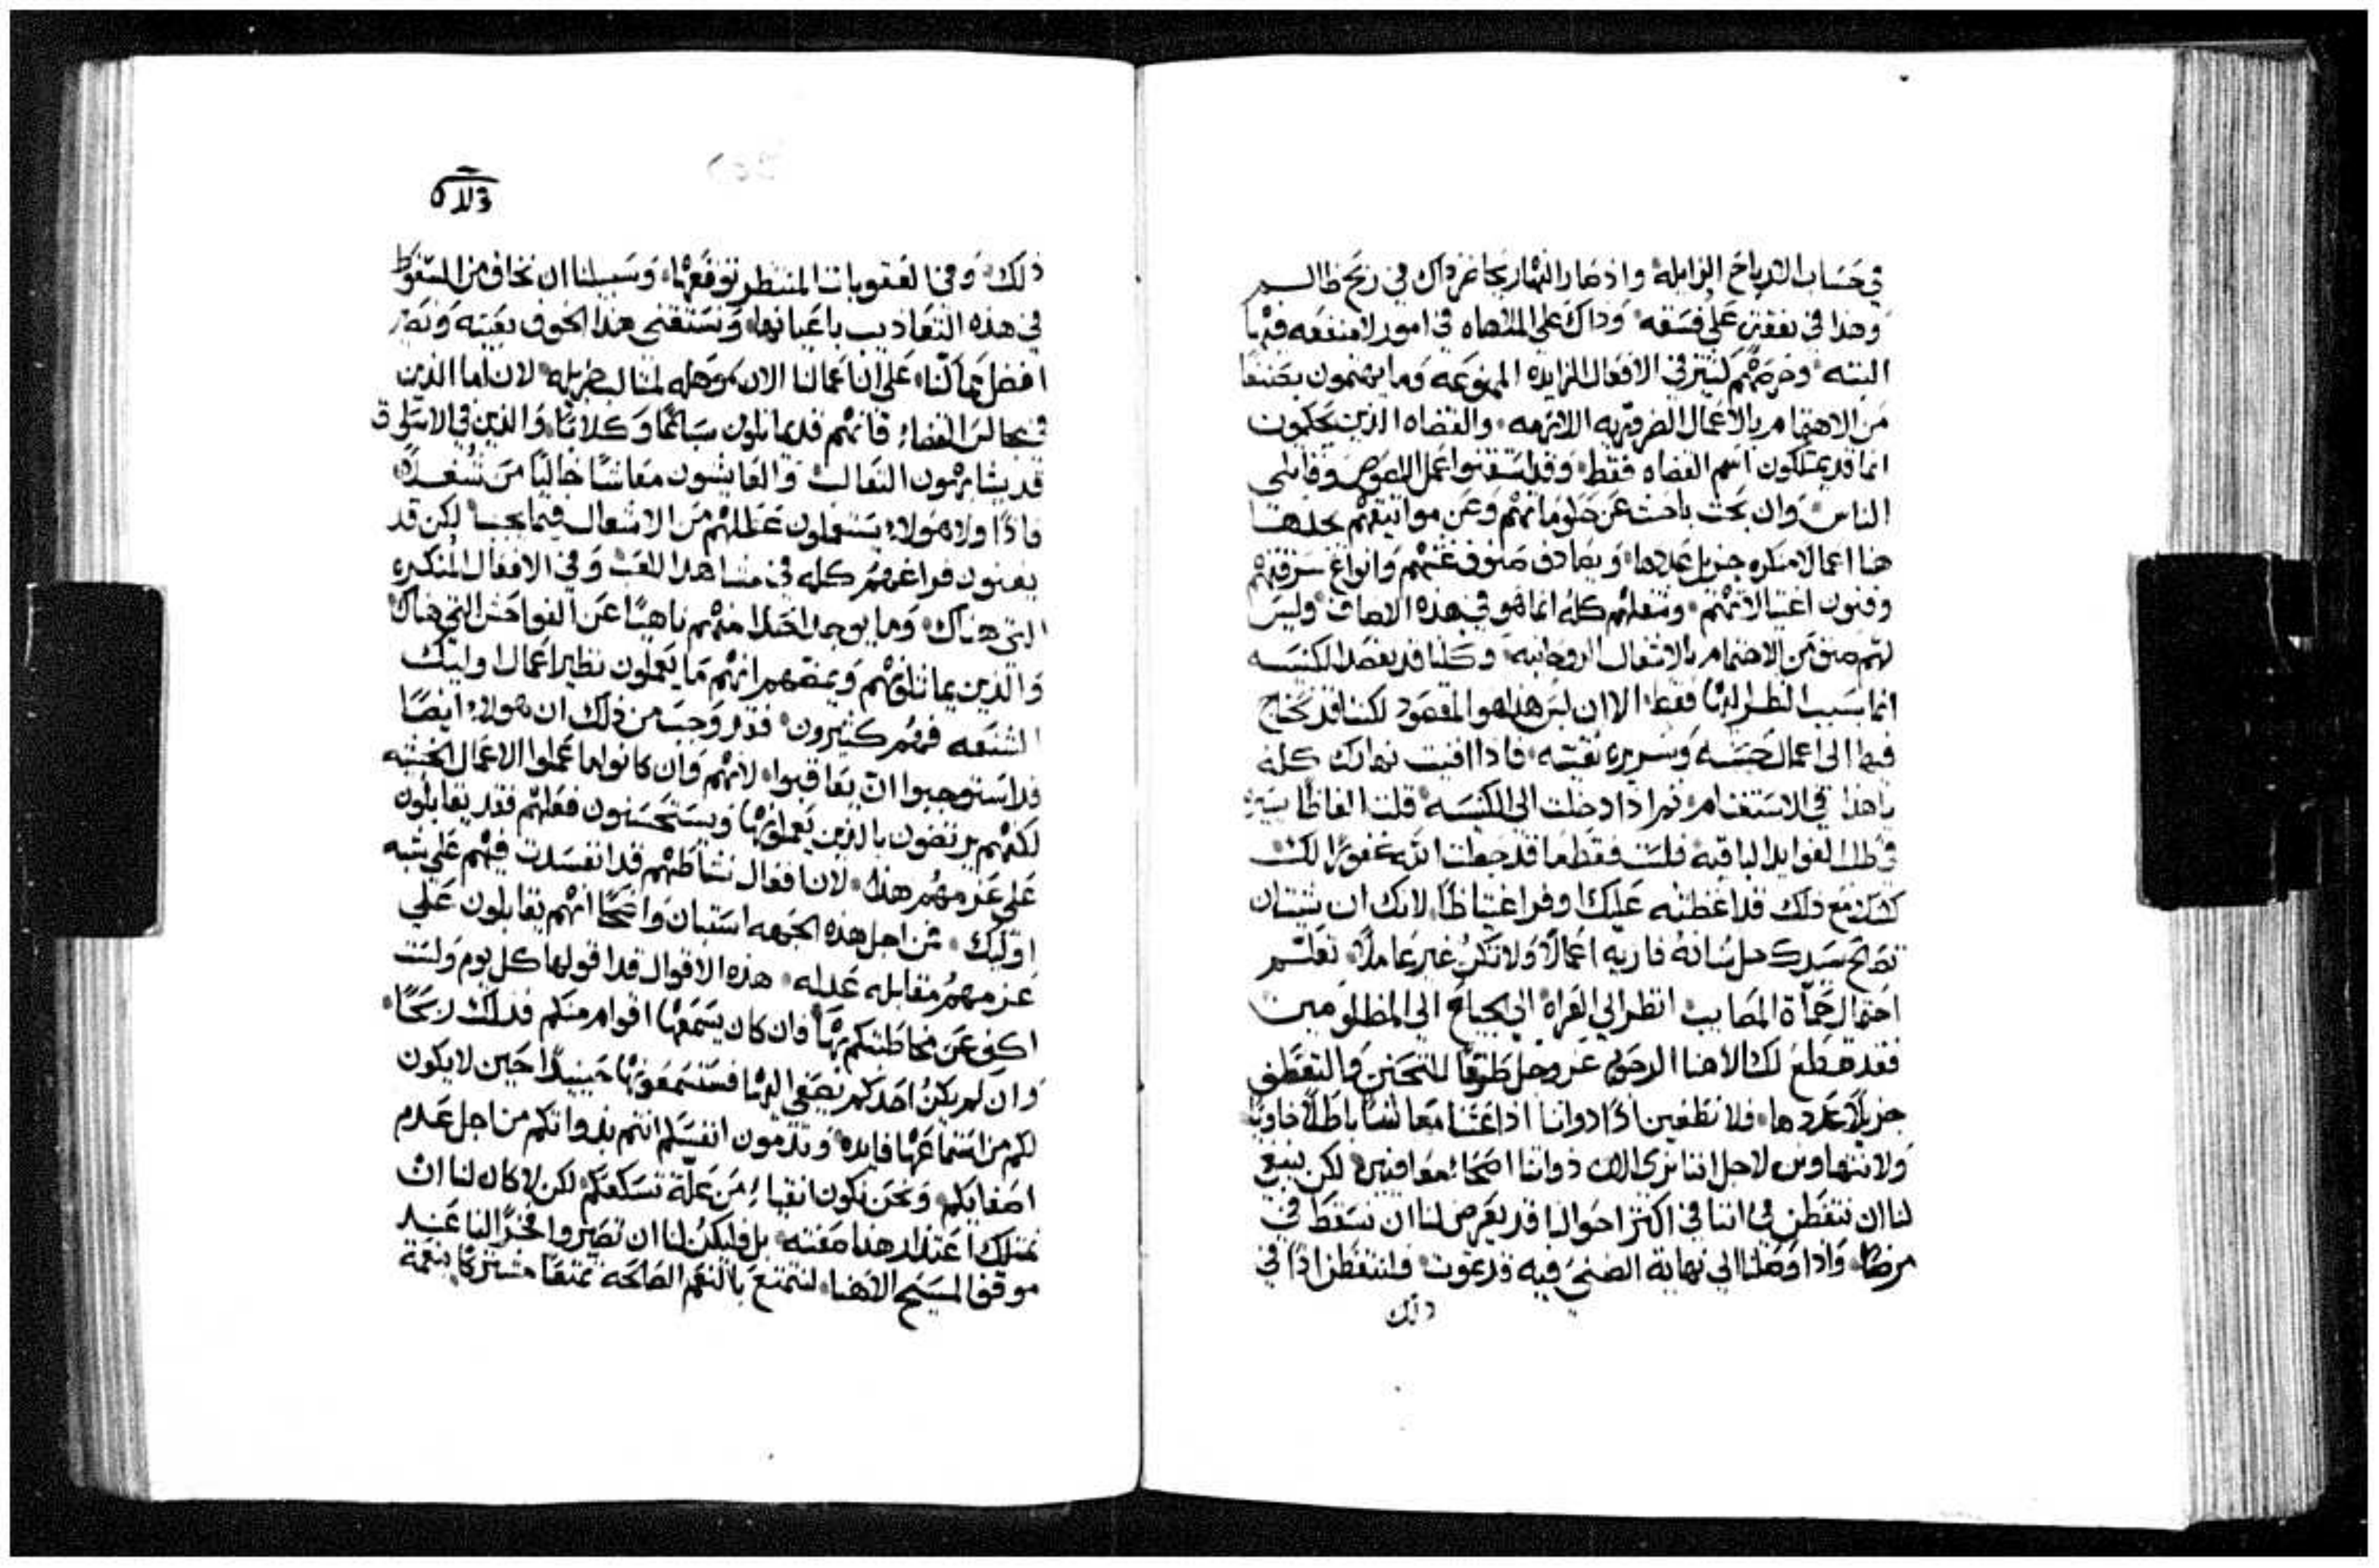 في حساب الارباح الزايله واذ صار النهار يجاغر ذاك في ربح ظالم
وهذا في نفقته على فسقه وذاك على الملهاه في امور لا منفعه فيها
البته وحرصهم كثير في الافعال الزايده الممنوعه وما يهتمون بصنف
من الاهتمام بالاعمال الضروريه اللازمه والقضاه الذين يحكمون
انما قد يمتلكون اسم القضاه فقط وقد استقنوا عمل اللصوص وقاتلي
الناس وان بحث باحث عن خصوماتهم وعن مواثيقهم يجد هنا
هنا اعمالا منكره جزيل عددها ويصادف صنوف غشهم وانواع سرقتهم
وفنون اغتيالاتهم وشغلهم كله انما هو في هذه الاصناف وليس
لهم صنف من الاهتمام بالاشغال الروحانيه وكلنا قد نقصد الكنيسه
انما بسبب النظر اليها فقط الا ان ليس هذا هو المقصود لكننا قد نحتاج
فيها الى اعمال حسنه وسريره نقيه فاذا افنيت نهارك كله
يا هذا في الاستغنام ثم اذا دخلت الى الكنيسه قلت الفاظا يسيره
في طلب الفوايد الباقيه فلست فقط ما قد جعلت الله غفورا لك
لكنك مع ذلك قد اغظته عليك اوفر اغتياظا لانك ان شيت ان
تصالح سيدك جل شانه فاريه اعمالا ولا تكن غير عاملا تعلم
احتمال حمأة المصايب انظر الى العراه الى الجياع الى المظلومين
فقد قطع لك الاهنا الرحوم عز وجل طرقا للتحنن والتعطف
جزيلا عددها فلا نطغين اذا ذواتنا اذا عشنا معاشا باطلا خاويا
ولا نتهاون لاجل اننا نرى الان ذواتنا اصحاء معافين لكن ينبغي
لنا ان نتفطن في اننا في اكثر احوالنا قد يعرض لنا ان نسقط في
مرض واذا وصلنا الى نهاية الضنى فيه قد نموت فلنتفطن اذا في
ذلك
ذلك وفي العقوبات المنتظر توقعها وسبيلنا ان نخاف من السقوط
في هذه التعاذيب باعيانها ونستقني هذا الخوف بعينه ونصر
افضل مما كنا على ان اعمالنا الان موهله لمثالب جزيله لان اما الذين
في مجالس القضاء فانهم قد يماثلون سباعا وكلابا والذين في الاسواق
قد يشابهون الثعالب والعايشون معاشا خاليا من شغل
فاذا ولا هولاء يستعملون عطلهم من الاشغال فيما يجب لكن قد
يفنون فراغهم كله في مشاهد اللعب وفي الافعال المنكره
التي هناك وما يوجد احدا منهم ناهيا عن الفواحش التي هناك
والذين يماثلونهم ويمضهم انهم ما يعملون نظير اعمال اوليك
الشنعه فهم كثيرون فقد وجب من ذلك ان هولاء ايضا
قد استوجبوا ان يعاقبوا لانهم وان كانوا ما عملوا الاعمال الخبيثه
لكنهم يرتضون بالذين يعملونها ويستحسنون فعلهم فقد يقابلون
على عزمهم هذا لان افعال نشاطهم قد انفسدت فيهم على شبه
اوليك فمن اجل هذه الجهه استبان واضحا انهم يقابلون على
عزمهم مقابله عدله هذه الاقوال قد اقولها كل يوم ولست
اكف عن مخاطبتكم بها فان كان يسمعها اقوام منكم فذلك ربحا
وان لم يكن احدكم يصغي اليها فستسمعونها حينيذا حين لا يكون
لكم من استماعها فايده وتذمون انفسكم انتم بذواتكم من اجل عدم
اصغايكم ونحن نكون انقياء من علة تسكعكم لكن لا كان لنا ان
نمتلك اعتذار هذا صفته بل فليكن لنا ان تصيروا فخرا لنا عند
موقف المسيح الاهنا لنتمتع بالنعم الصالحه تمتعا مشتركا بنعمة